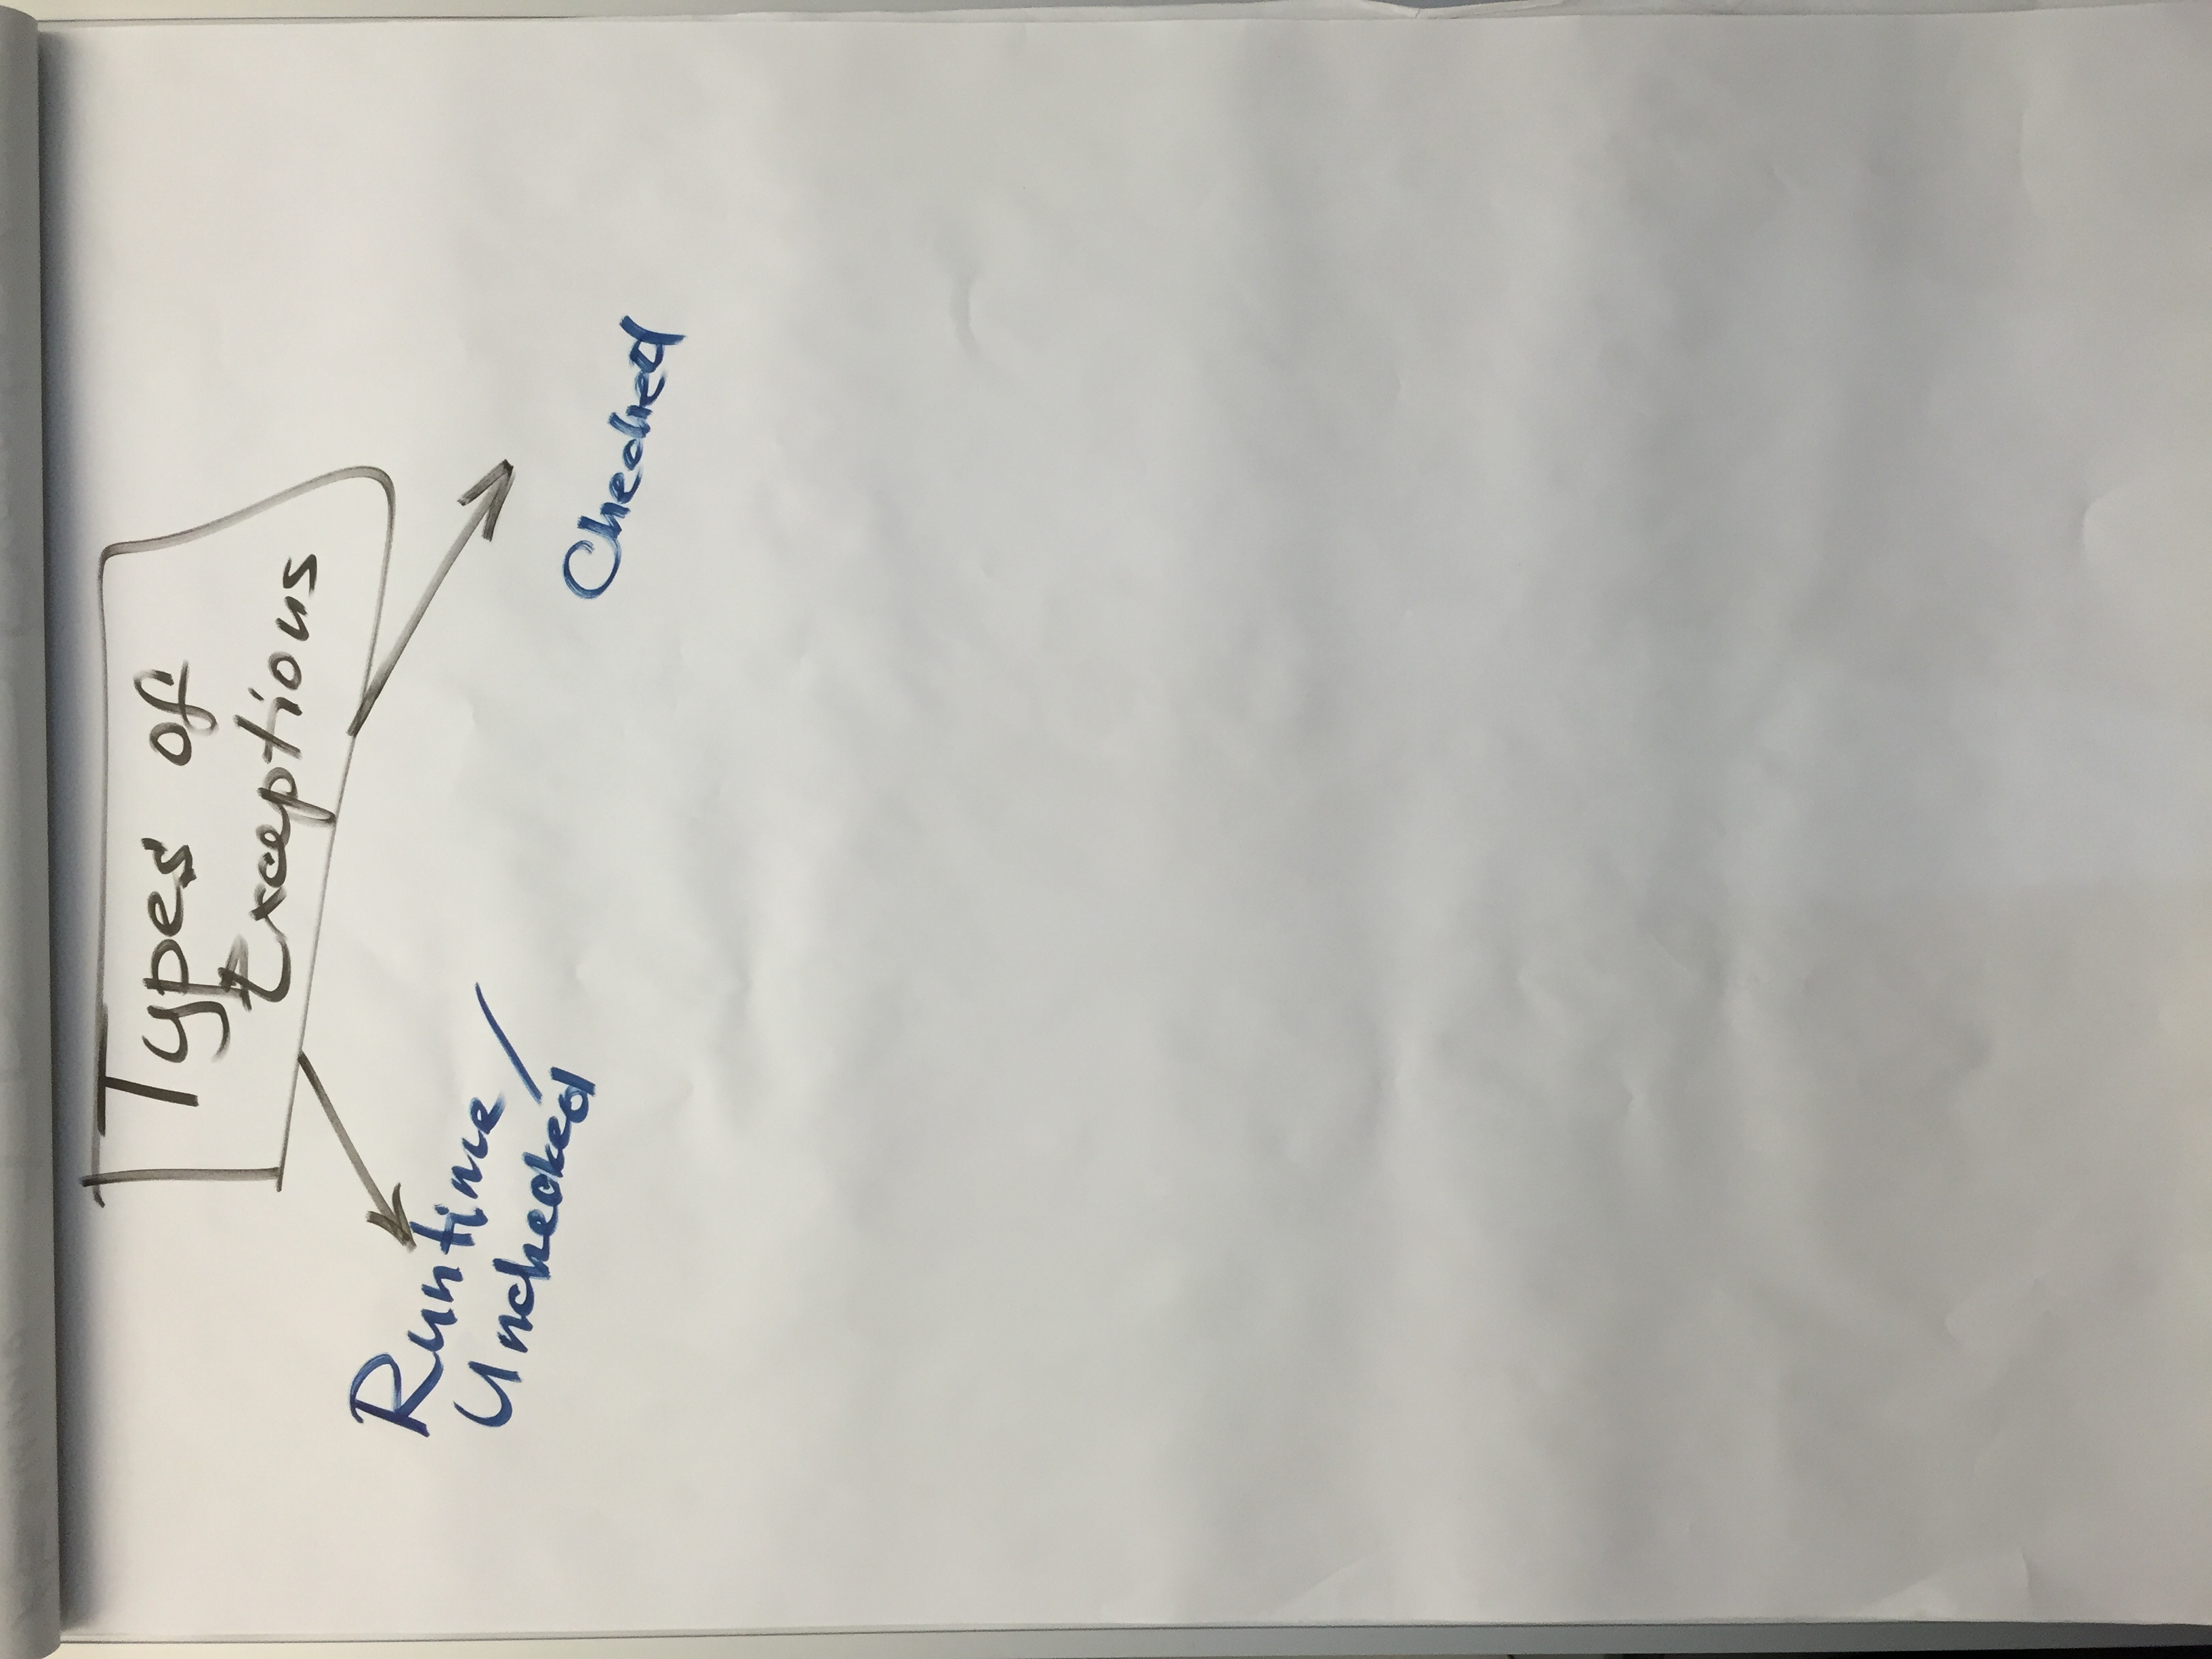 Types of
Exceptions
Runtime/
Unchecked
Checked